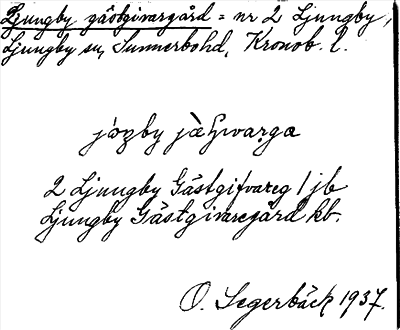 Ljungby gästgivargård = nr 2 Ljungby,
Ljungby sn, Sunnerbohd, Kronob. l.
2 Ljungby Gästgifvareg 1 jb
Ljungby Gästgivaregård kb.
O. Segerbäck 1937.